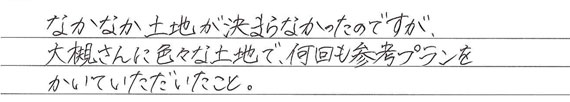 なかなか土地が決まらなかったのですが、
大槻さんに色々な土地で、何回も参考プランを
かいていただいたこと。